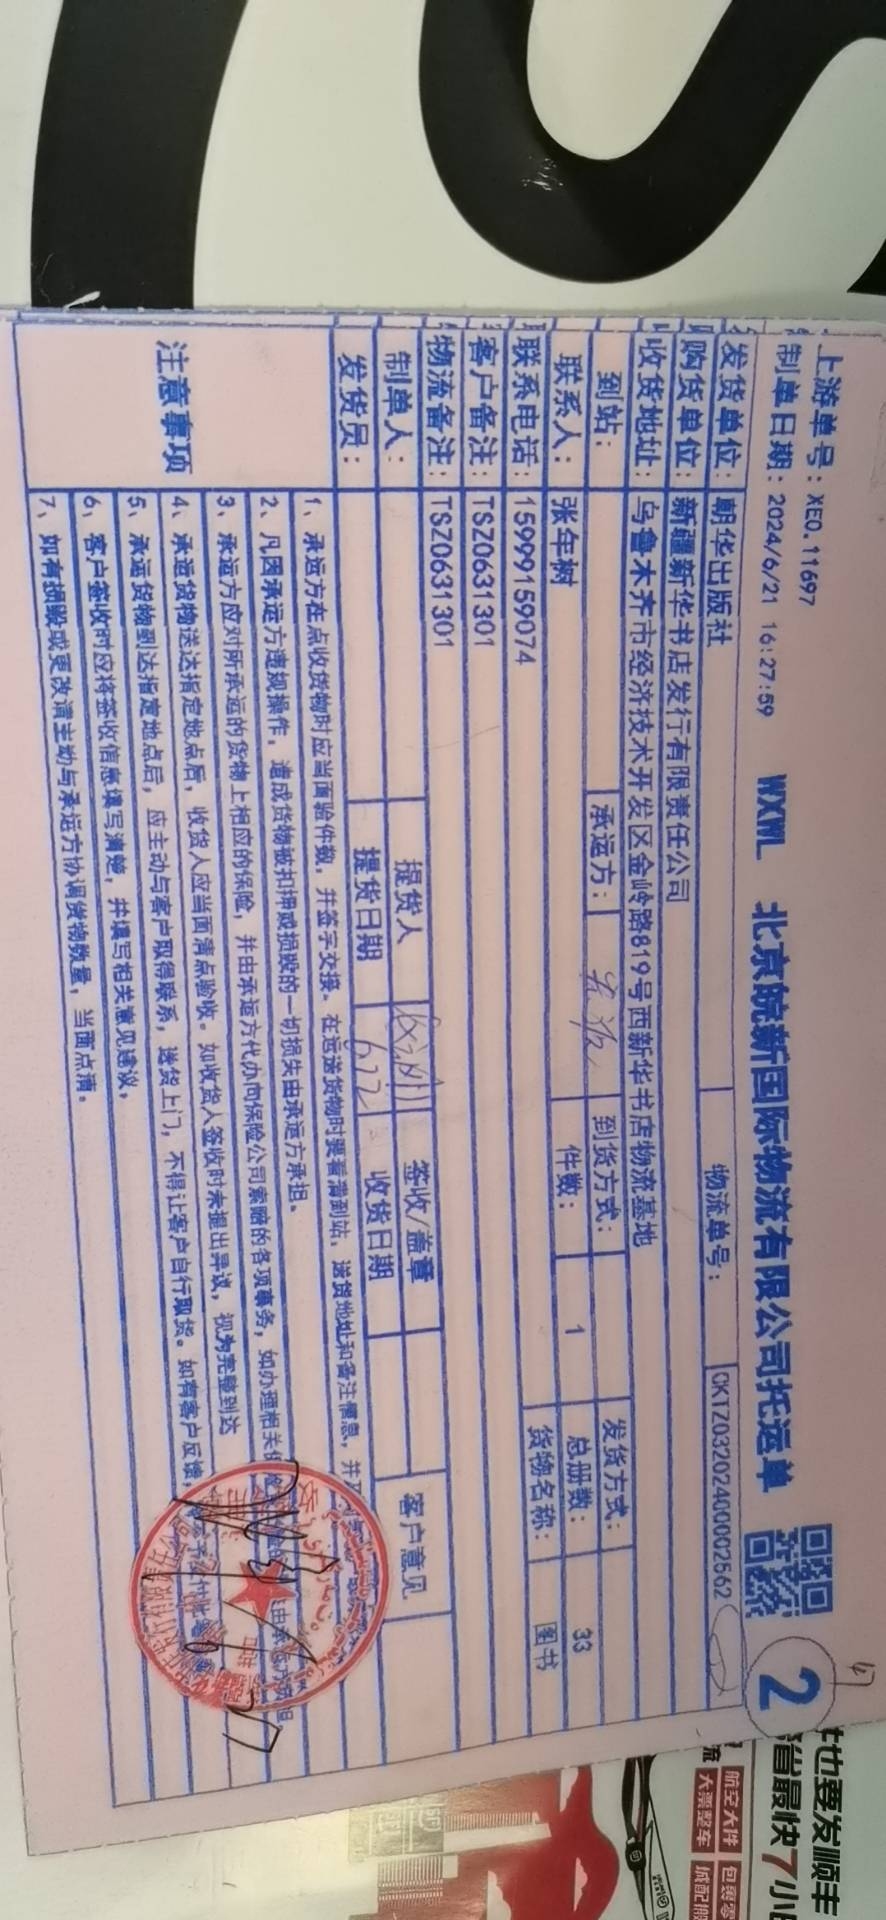 上游单号：XEO.11697
制单日期：2024/6/21 16:27:59
WXWL 北京皖新国际物流有限公司托运单
2
发货单位：朝华出版社 物流单号：CKTZ0320240002562
购货单位：新疆新华书店发行有限责任公司
收货地址：乌鲁木齐市经济技术开发区金岭路819号西新华书店物流基地
到站： 承运方： 到货方式： 发货方式：
联系人：张年树 件数：1 总册数：33
联系电话：15999159074 货物名称：图书
客户备注：TSZ0631301
物流备注：TSZ0631301
制单人： 提货人 签收/盖章 客户意见
发货员： 提货日期 6.22 收货日期
注意事项
1、承运方在点收货物时应当面验件数，并签字交接。在运送货物时要看清到站，送货地址和备注信息，并
2、凡因承运方违规操作，造成货物被扣押或损毁的一切损失由承运方承担。
3、承运方应对所承运的货物上相应的保险，并由承运方代办向保险公司索赔的各项事务，如办理相关
4、承运货物送达指定地点后，收货人应当面清点验收。如收货人签收时未提出异议，视为完整到达
5、承运货物到达指定地点后，应主动与客户取得联系，送货上门，不得让客户自行取货。如有客户反馈，
6、客户签收时应将签收信息填写清楚，并填写相关意见建议。
7、如有损毁或更改请主动与承运方协调货物数量，当面点清。
也要发顺丰
省最快7小
航空大件 包裹零
流 大票整车 城配搬